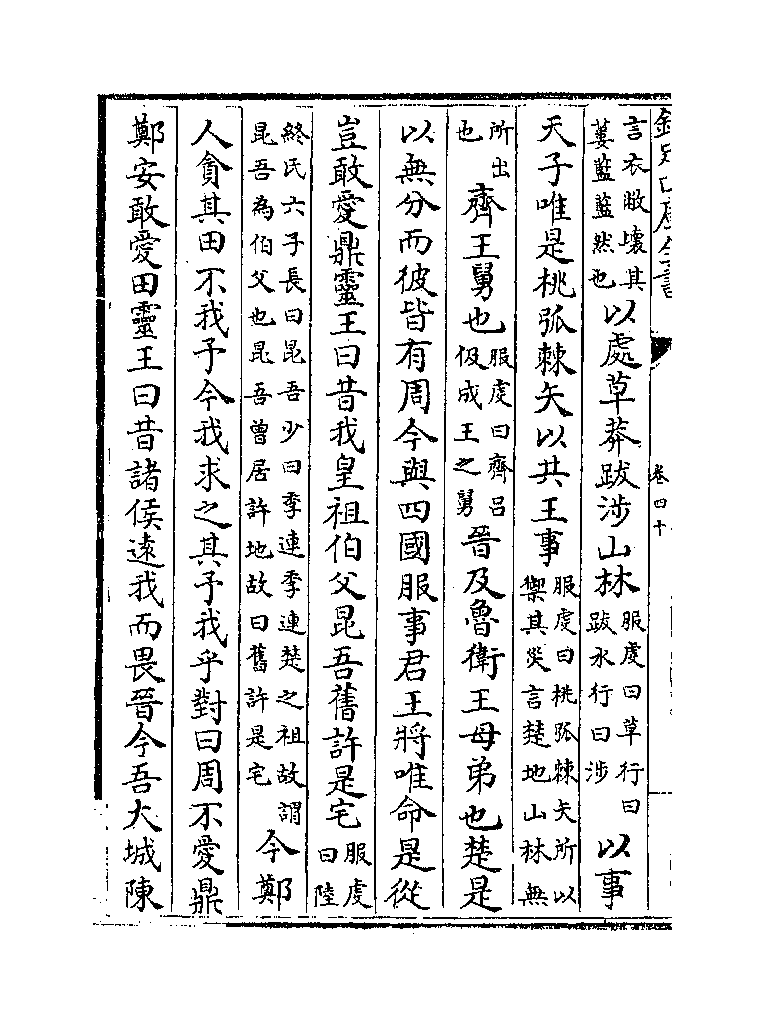 欽定四庫全書
卷四十
言衣敝壞其蔞藍藍然也以處草莽跋涉山林服虔曰草行曰跋水行曰涉以事
天子唯是桃弧棘矢以共王事服虔曰桃弧棘矢所以禦其災言楚地山林無
所出也齊王舅也服虔曰齊吕伋成王之舅晉及魯衛王母弟也楚是
以無分而彼皆有周今與四國服事君王將唯命是從
豈敢愛鼎靈王曰昔我皇祖伯父昆吾舊許是宅服虔曰陸
終氏六子長曰昆吾少曰季連季連楚之祖故謂昆吾為伯父也昆吾曾居許地故曰舊許是宅今鄭
人貪其田不我予今我求之其予我乎對曰周不愛鼎
鄭安敢愛田靈王曰昔諸侯遠我而畏晉今吾大城陳